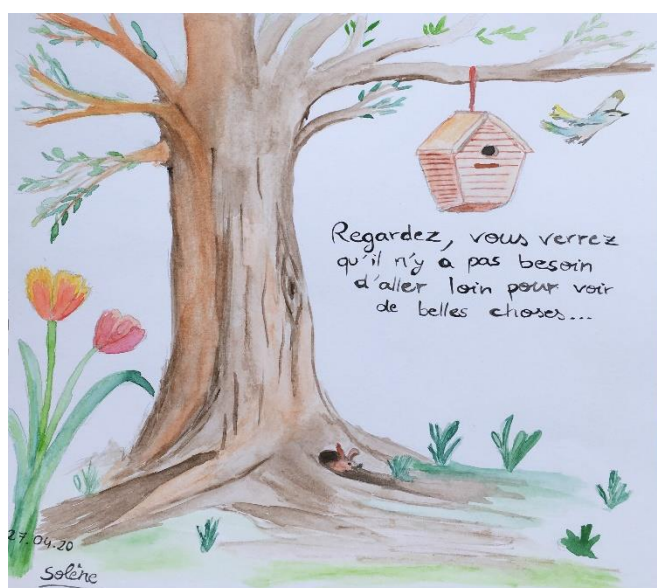 Regardez, vous verrez
qu'il n'y a pas besoin
d'aller loin pour voir
de belles choses...
27.04.20
Solène